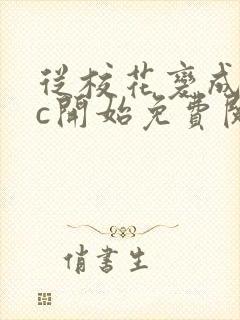 從校花褻成
c開始免費閱
俏書生